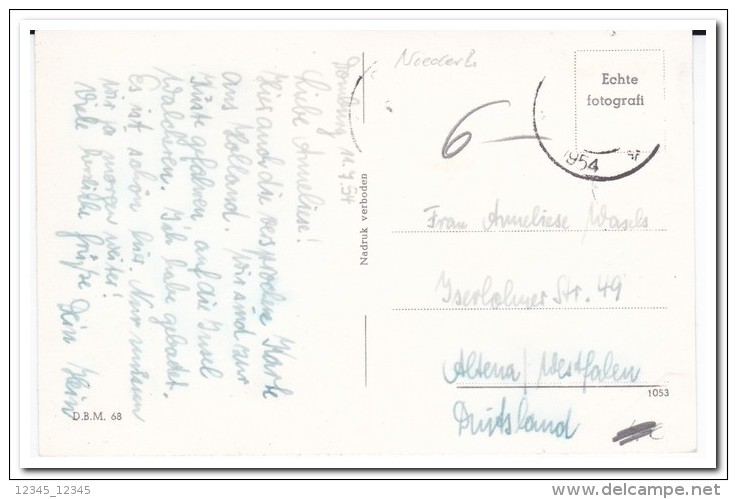 Domburg 11.7.54
Liebe Anneliese!
Hier auch die versprochene Karte
aus Holland. Wir sind zur
Küste gefahren auf die Insel
Walcheren. Ich habe gebadet.
Es ist schön hier. Nur müssen
wir ja morgen weiter!
Viele herzliche Grüße Dein Hein
D.B.M. 68
Nadruk verboden
6-
Echte
fotografi
1954
Frau Anneliese
Iserlohner Str. 49
Altena / Westfalen
1053
Deutschland
12345_12345